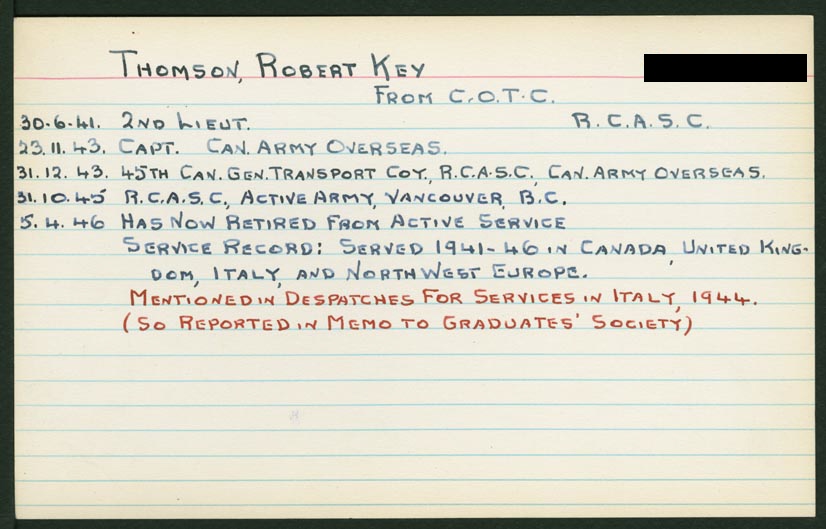 THOMSON, ROBERT KEY
FROM C.O.T.C.
30.6.41. 2ND LIEUT. R.C.A.S.C.
23.11.43. CAPT. CAN. ARMY OVERSEAS.
31.12.43. 45TH CAN. GEN. TRANSPORT COY., R.C.A.S.C., CAN. ARMY OVERSEAS.
31.10.45 R.C.A.S.C., ACTIVE ARMY, VANCOUVER, B.C.
15.4.46 HAS NOW RETIRED FROM ACTIVE SERVICE
SERVICE RECORD: SERVED 1941-46 IN CANADA, UNITED KING-
DOM, ITALY, AND NORTHWEST EUROPE.
MENTIONED IN DESPATCHES FOR SERVICES IN ITALY, 1944.
(SO REPORTED IN MEMO TO GRADUATES' SOCIETY)